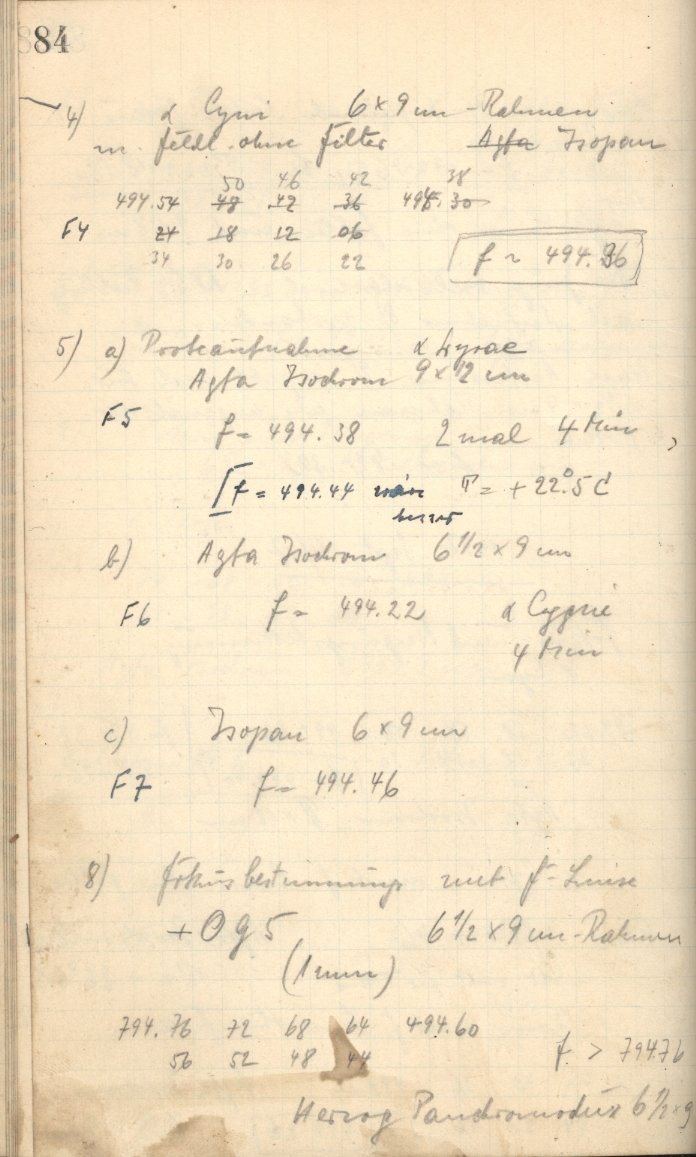 84
4) α Cygni 6 x 9 cm - Rahmen
m. Feldl. ohne Filter Agfa Isopan
50 46 42 38
494.54 48 42 36 494.30
F4 24 18 12 06
34 30 26 22
f ~ 494.36
5) a) Probeaufnahme α Lyrae
Agfa Isochrom 9 x 12 cm
F5 f = 494.38 2 mal 4 Min
f = 494.44 wäre T = + 22°.5 C
besser
b) Agfa Isochrom 6 1/2 x 9 cm
F6 f = 494.22 α Cygni
4 Min
c) Isopan 6 x 9 cm
F7 f = 494.46
8) Fokusbestimmung mit F-Linse
+ O g 5 6 1/2 x 9 cm - Rahmen
(1 mm)
794.76 72 68 64 494.60
56 52 48 44
f > 794.76
Herzog Panchromodux 6 1/2 x 9